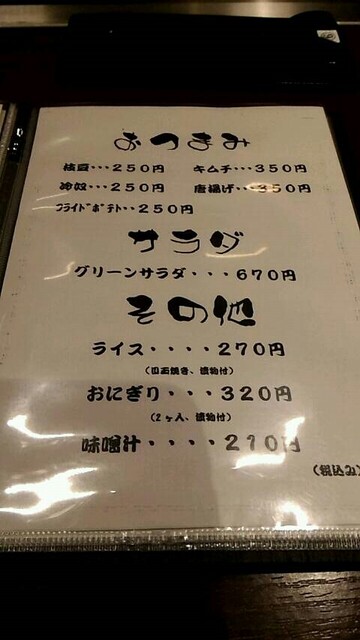 おつまみ
枝豆・・・250円 キムチ・・・350円
冷奴・・・250円 唐揚げ・・・350円
フライドポテト・・250円
サラダ
グリーンサラダ・・・670円
その他
ライス・・・・270円
(目玉焼き、漬物付)
おにぎり・・・320円
(2ヶ入、漬物付)
味噌汁・・・・210円
(税込み)